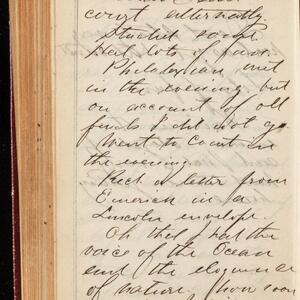 court alternately.
Studied some.
Had lots of fun.
Philalethian met
in the evening but
on account of old
I did not go
Went to Court in
the evening.
Recd a letter from
Emerson in a
Lincoln envelope.
Oh that I had the
voice of the Ocean
and the eloquence
of nature. how soon